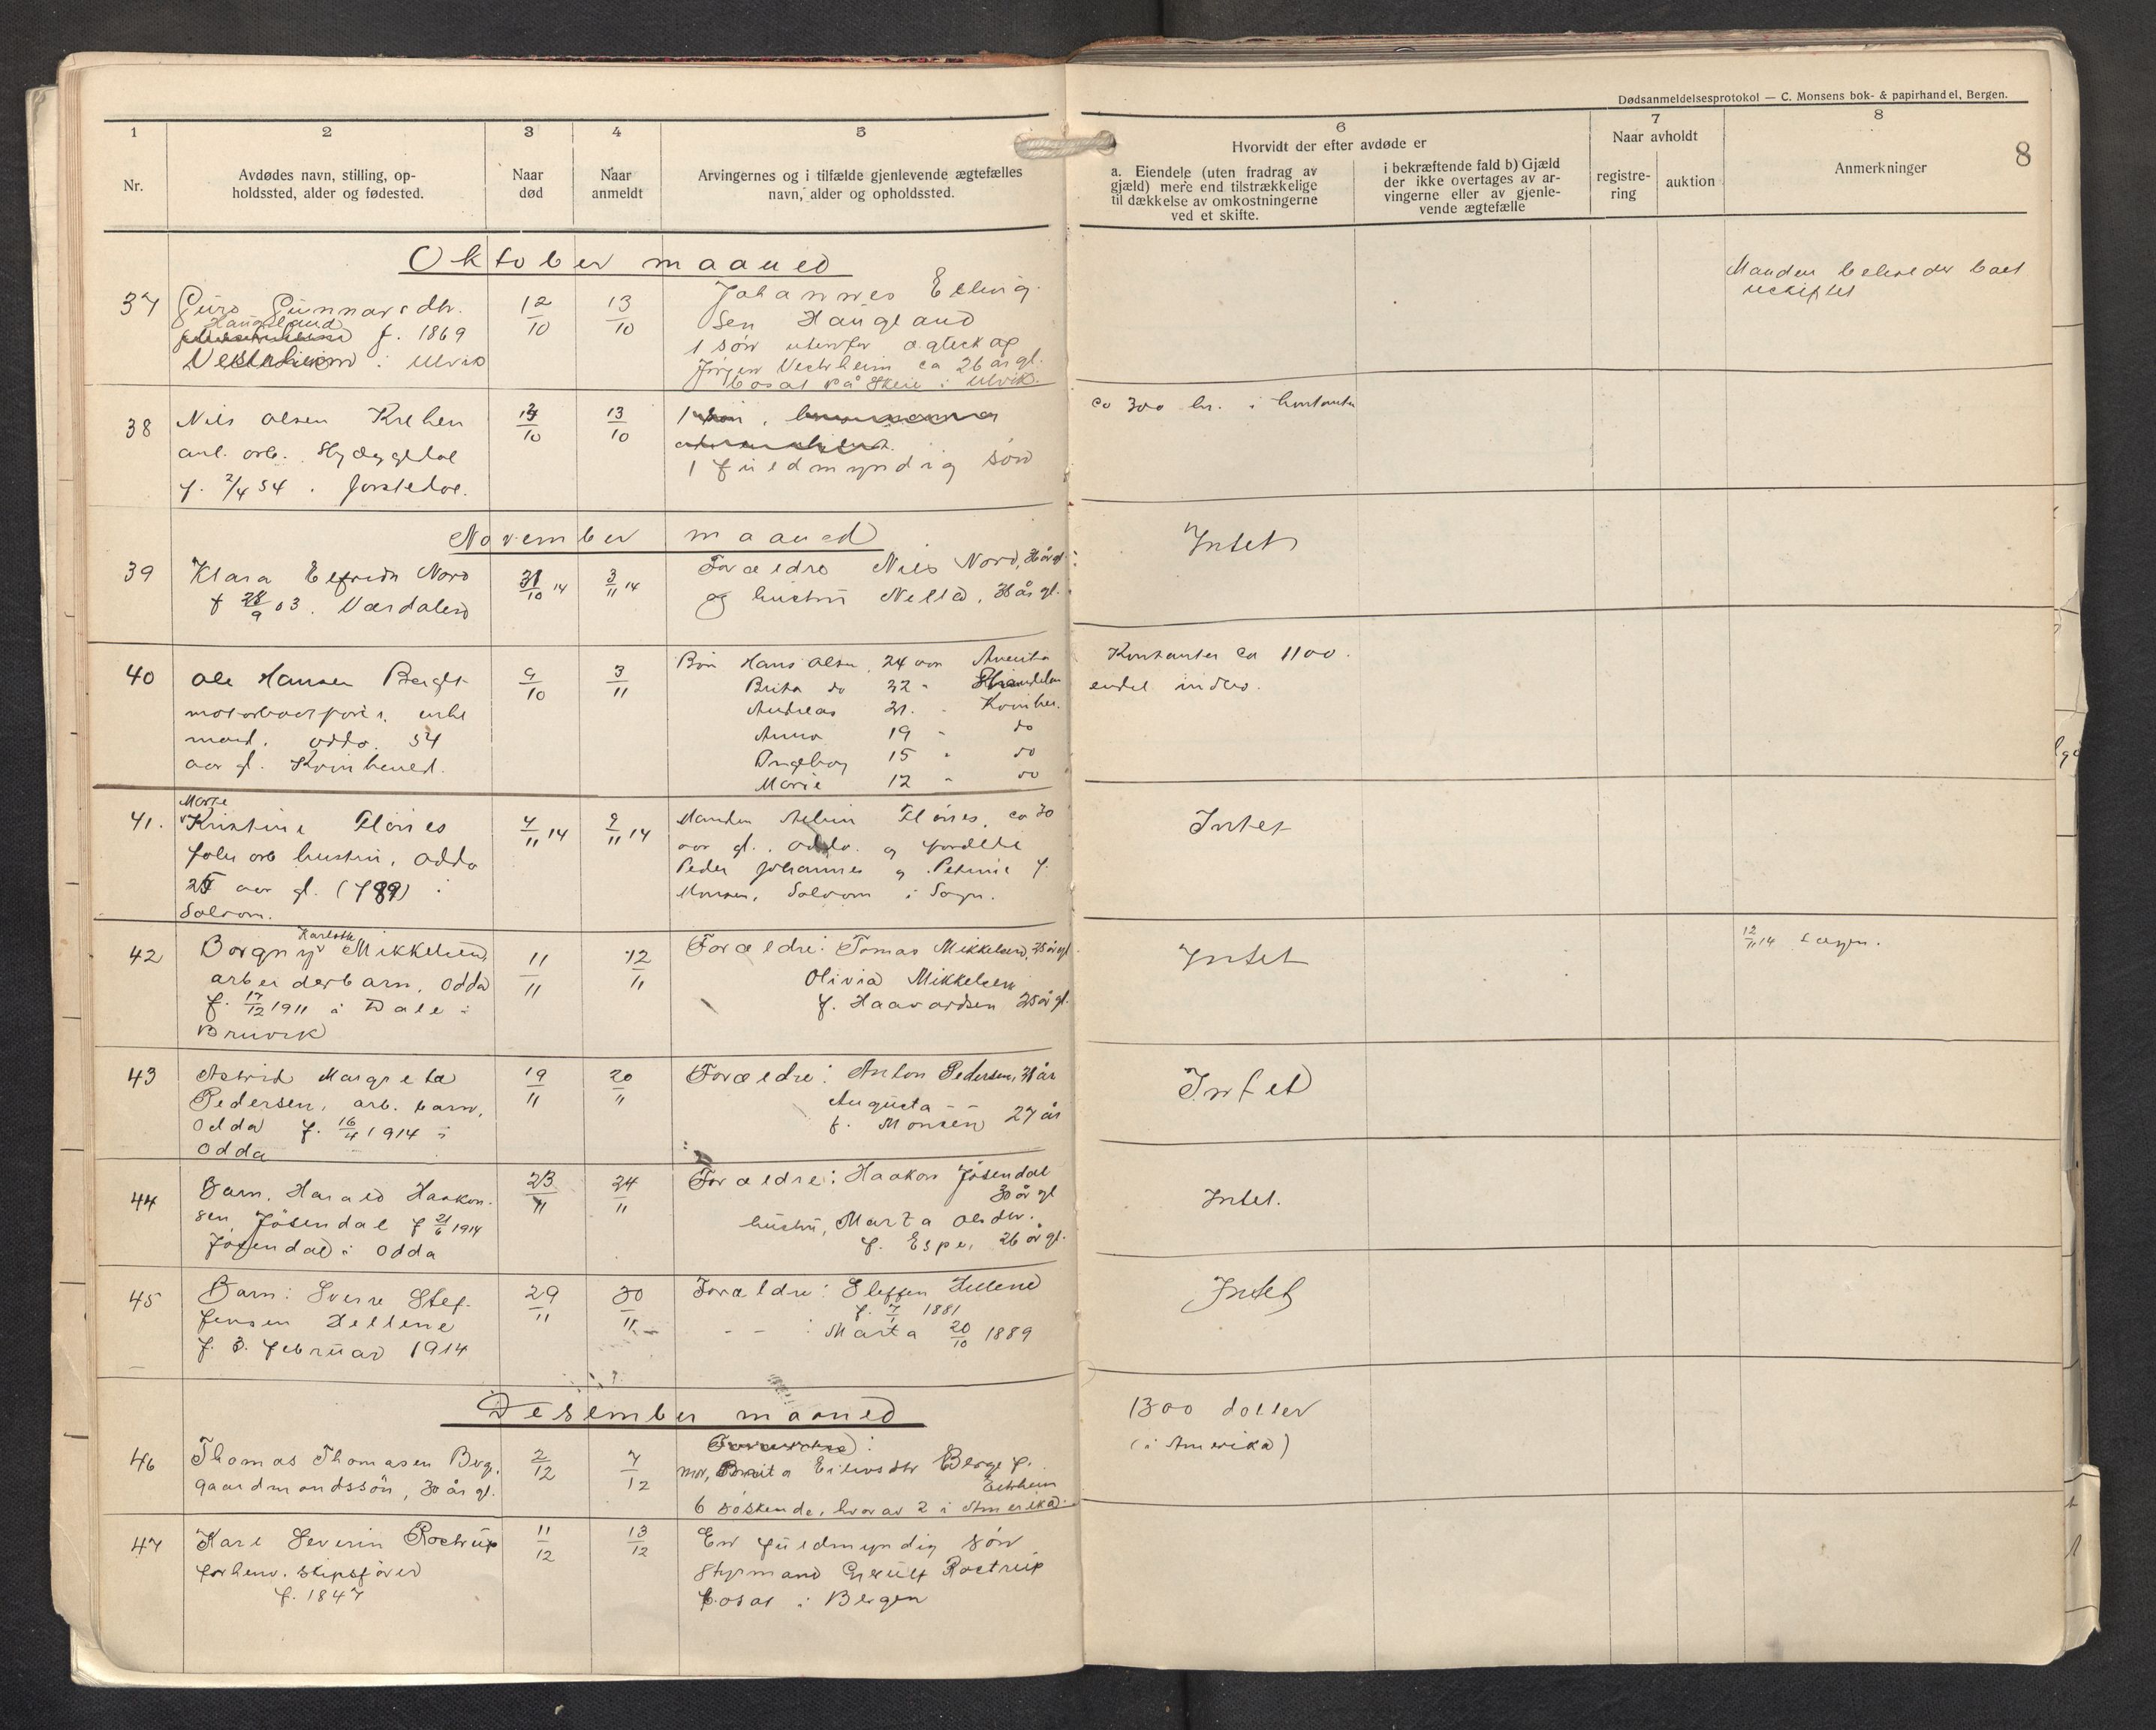 Dødsanmeldelsesprotokol — C. Monsens bok- & papirhandel, Bergen.
8
1
Nr.
2
Avdødes navn, stilling, op-
holdssted, alder og fødested.
3
Naar
død
4
Naar
anmeldt
5
Arvingernes og i tilfælde gjenlevende ægtefælles
navn, alder og opholdssted.
6
Hvorvidt der efter avdøde er
a. Eiendele (uten fradrag av
gjæld) mere end tilstrækkelige
til dækkelse av omkostningerne
ved et skifte.
i bekræftende fald b) Gjæld
der ikke overtages av ar-
vingerne eller av gjenle-
vende ægtefælle
7
Naar avholdt
registre-
ring
auktion
8
Anmerkninger
Oktober maaned
37
Guro Gunnarsdtr.
Haugland
f. 1869
i Ulvik
12/10
13/10
Johannes Elling-
sen Haugland
1 søn utenfor ægteskap
Jørgen Vestrheim ca 26 år gl.
bosat på Skeie i Ulvik.
Manden beholder boet
uskiftet
38
Nils Olsen Kreken
anl. arb.
f. 2/4 54. Jostedal.
/10
13/10
1 fuldmyndig søn
ca 300 kr. i kontanter
November maaned
39
Klara Elfrida Nord
f 28/9 03. Værdalen
31/10 14
3/11 14
Forældre Nils Nord, 36 år gl.
og hustru Nella, 38 år gl.
Intet
40
Ole Hansen
enke
mand. Odda. 54
aar gl. Kvinhered.
9/10
3/11
Bør Hans Olsen 24 aar Amerika
Brita do 32 "
Andreas 21. " Kvinher.
Anna 19 " do
Ingeborg 15 " do
Marie 12 " do
Kontanter ca 1100.
endel indbo.
41.
Marie
Kristine Flones
fabr arb hustru, Odda
25 aar gl. (789) i
Solvorn.
7/11 14
9/11 14
Manden Flones, ca 30
aar gl., Odda. og forældre
Peder Johannes og Petrine f.
Monsen, Solvorn i Sogn.
Intet
42
Karlotte
Borgny Mikkelsen,
arbeiderbarn, Odda
f. 17/12 1911 i Dale i
Bruvik
11/11
12/11
Forældre: Tomas Mikkelsen, 28 år gl.
Olivia Mikkelsen
f. Haavardsen 25 år gl.
Intet
12/11 14
43
Astrid Margreta
Pedersen, arb. barn,
Odda f. 16/4 1914 i
Odda
19/11
20/11
Forældre: Anton Pedersen, 31 år
Augusta - -
f. Monsen 27 år
Intet
44
Barn, Harald Haakon-
sen, Jøsendal f 21/6 1914
Jøsendal i Odda
23/11
24/11
Forældre: Haakon Jøsendal
30 år gl
hustru, Marta Olsdtr.
f. Espe, 26 år gl.
Intet.
45
Barn: Sverre Stef-
fensen Hellene
f. 3. februar 1914
29/11
30/11
Forældre: Steffen Hellene
f. 7/1 1881
- - : Marta 20/10 1889
Intet
Desember maaned
46
Thomas Thomasen Berge,
gaardmandssøn, 30 år gl.
2/12
7/12
Forældre:
mor, Brita Eilivsdtr Berge f.
Eitrheim
6 søskende, hvorav 2 i Amerika.
1300 doller
(i Amerika)
47
Karl Severin Rostrup
forhenv. skipsfører
f. 1847
11/12
13/12
En fuldmyndig søn
Styrmand Rostrup
bosat i Bergen